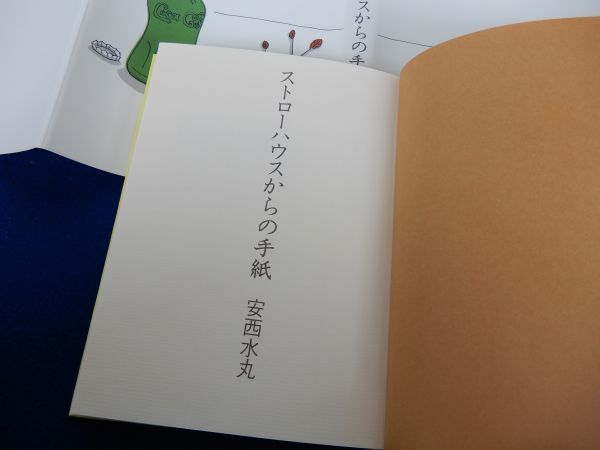 ストローハウスからの手紙
安西水丸
スからの手
Coca Co